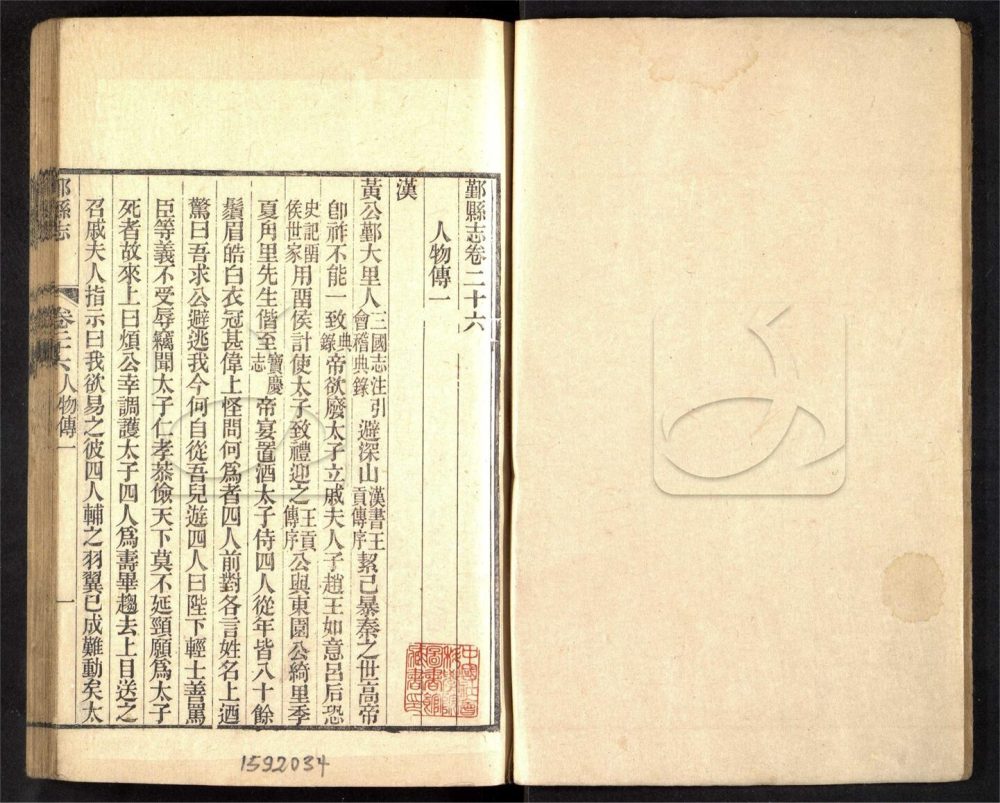 鄞縣志卷二十六
人物傳一
漢
黃公鄞大里人三國志注引會稽典錄避深山漢書王貢傳序絜己暴秦之世高帝
卽祚不能一致典錄帝欲廢太子立戚夫人子趙王如意呂后恐
史記畱侯世家用畱侯計使太子致禮迎之王貢傳序公與東園公綺里季
夏甪里先生偕至寶慶志帝宴置酒太子侍四人從年皆八十餘
鬚眉皓白衣冠甚偉上怪問何爲者四人前對各言姓名上迺
驚曰吾求公避逃我今何自從吾兒遊四人曰陛下輕士善罵
臣等義不受辱竊聞太子仁孝恭儉天下莫不延頸願爲太子
死者故來上曰煩公幸調護太子四人爲壽畢趨去上目送之
召戚夫人指示曰我欲易之彼四人輔之羽翼已成難動矣太
縣志
卷二十六人物傳一
一
1592034